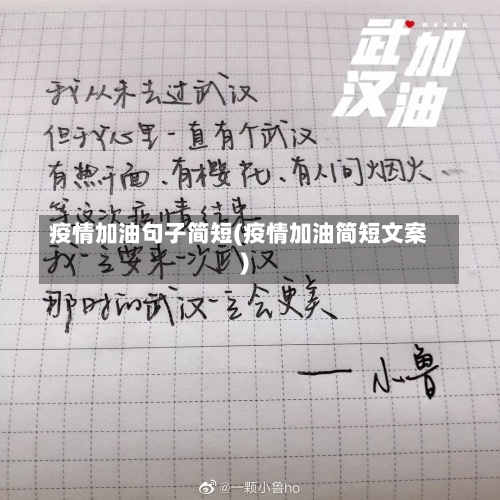 武汉
加油
WUHAN
我从未去过武汉
但我心里一直有个武汉
有热干面、有樱花、有人间烟火、
等这次疫情结束
疫情加油句子简短(疫情加油简短文案
)
我一定要来一次武汉
那时的武汉一定会更美
——小鲁
@一颗小鲁ho